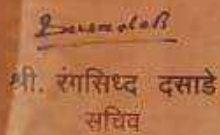 श्री. रंगसिध्द दसाडे
सचिव